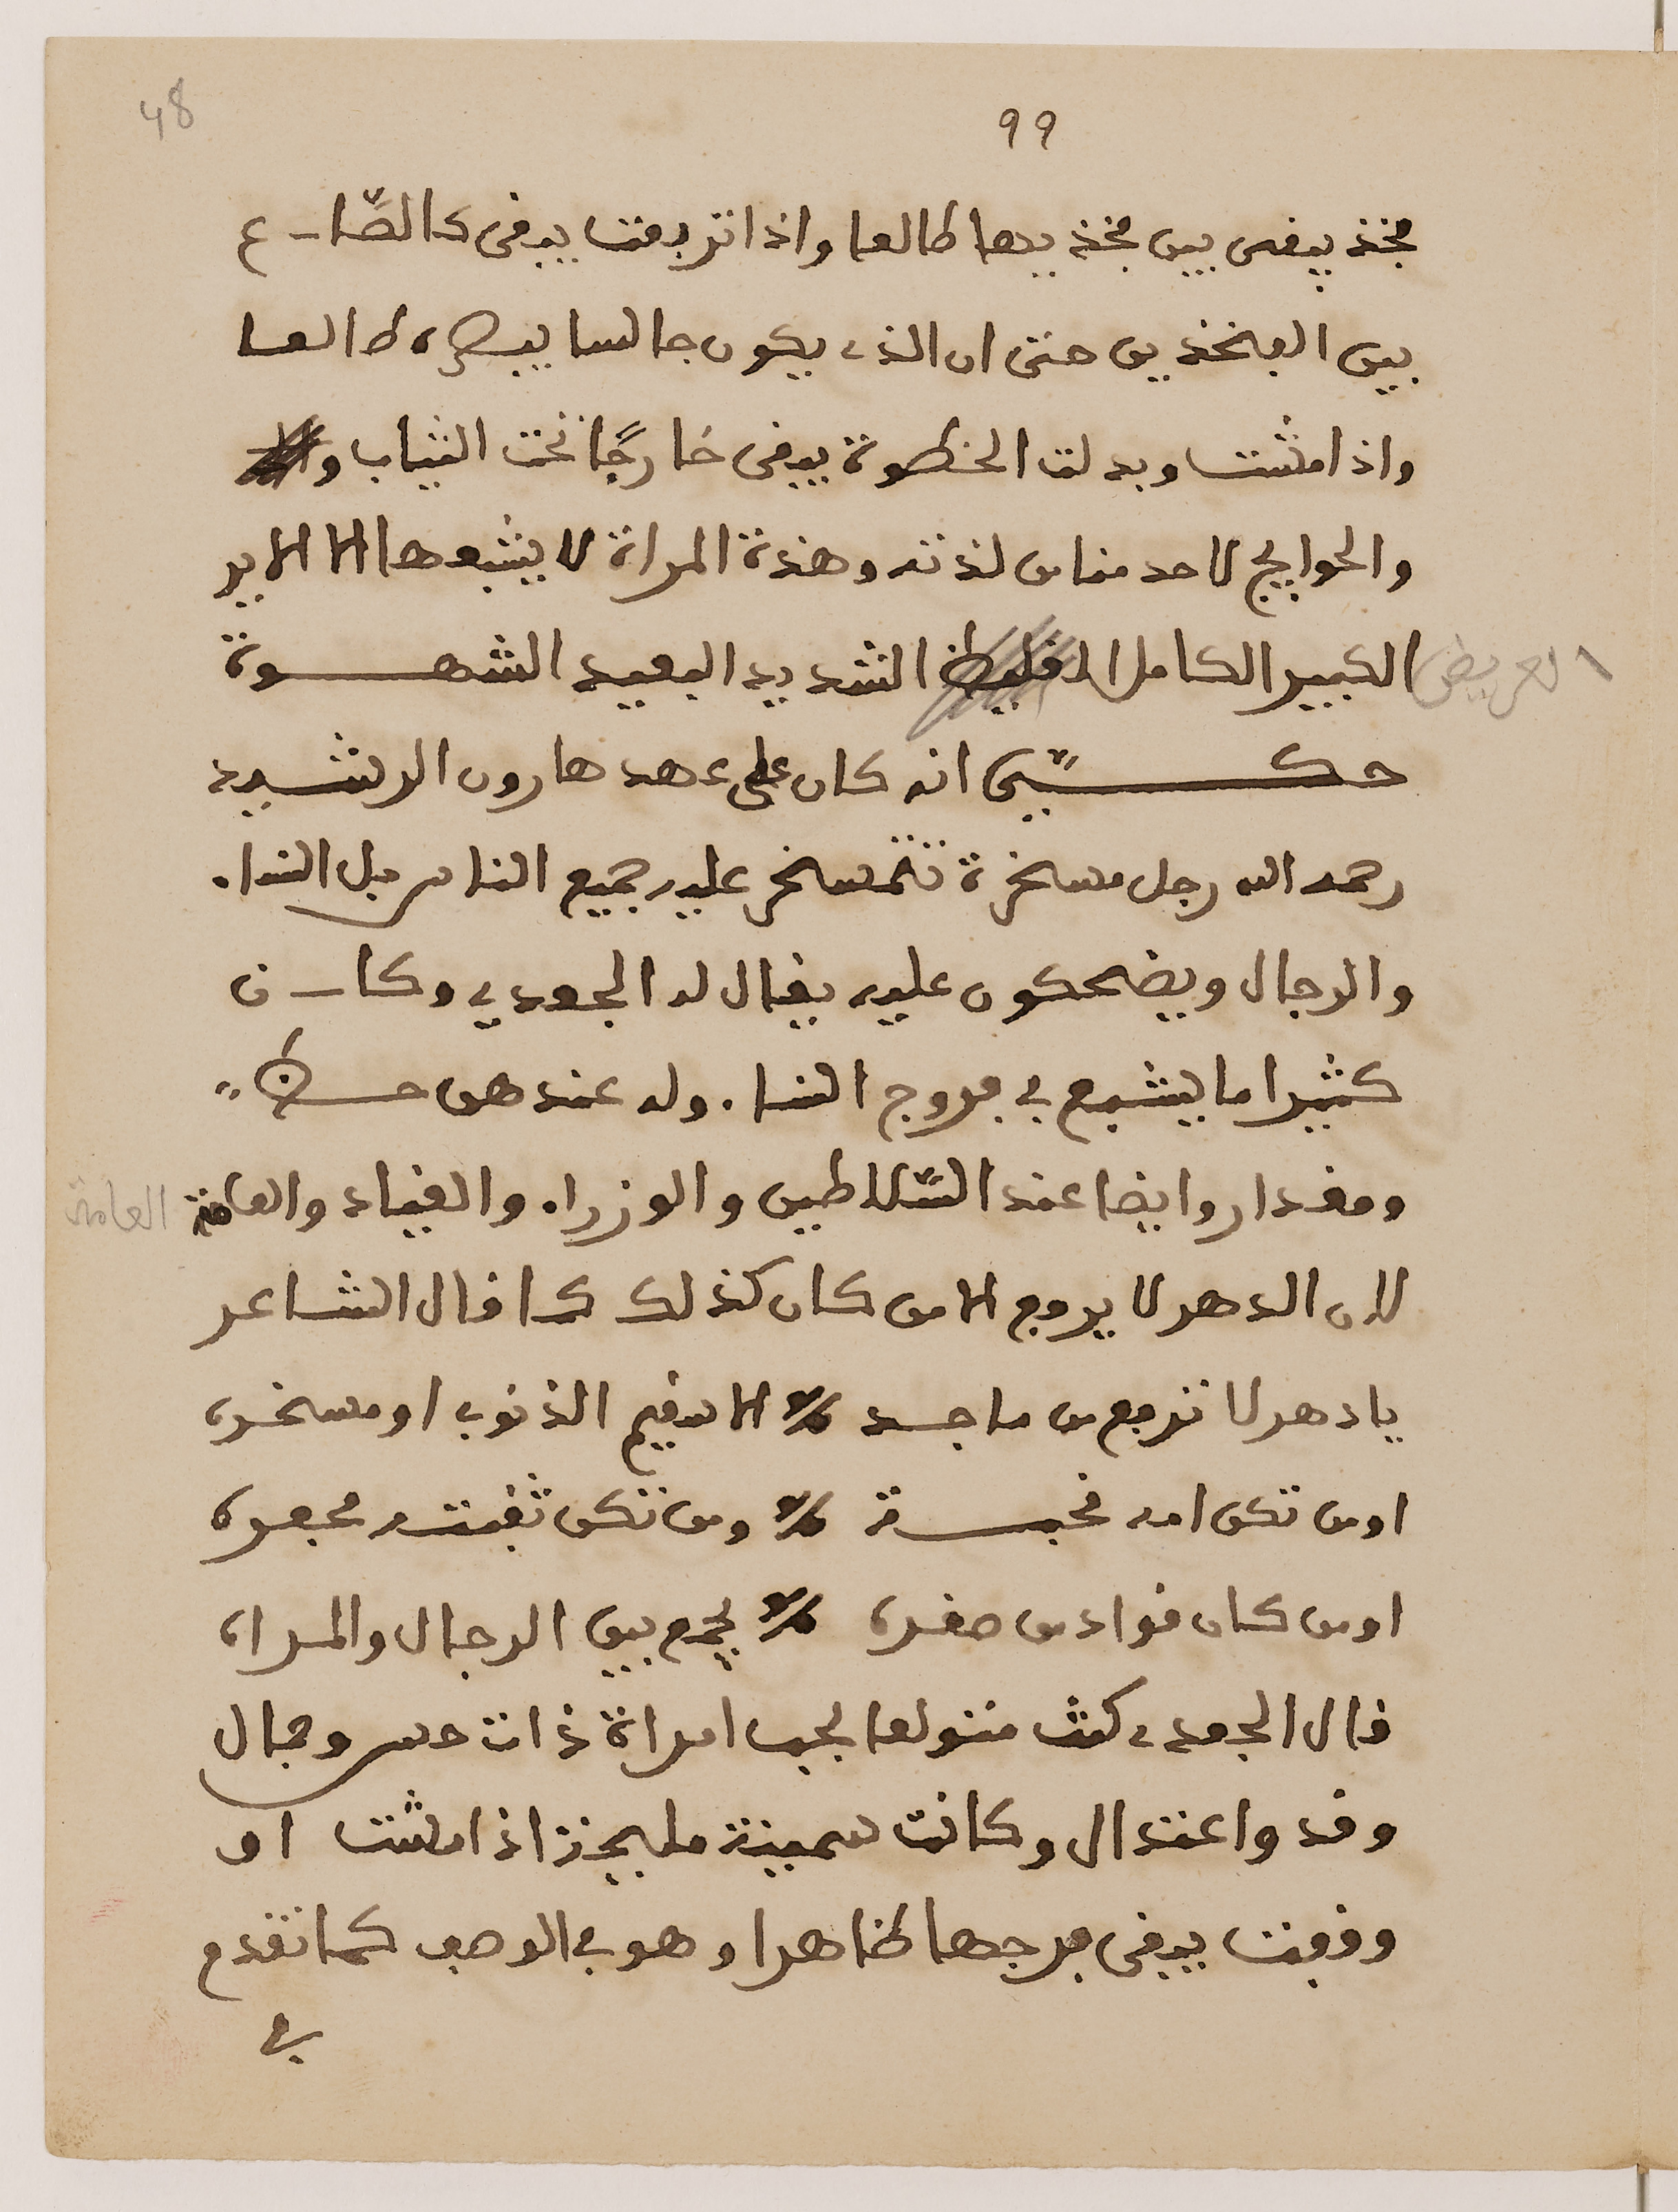 48
99
فخذ يبقى بين فخذيها طالعا واذا تربعت يبقى كالصّاع
بين الفخذين حتى ان الذي يكون جالسا يبصره طالعا
واذا مشت وبدلت الخطوة يبقى خارجًا تحت الثياب و
والحوايج لاحد مناص لذته وهذة المراة لا يشبعوها الا الاير
العريض الكبير الكامل الغليظ الشديد البعيد الشهوة
حكّي انه كان على عهد هارون الرشيد
رحمه الله رجل مسخرة تتمسخر عليه جميع الناس بل النساء
والرجال ويضحكون عليه يقال له الجعيدي وكان
كثيرا ما يشبع في فروج النساء وله عندهن حظ
ومقدار وايضا عند السّلاطين والوزراء والقياد والعامة العامة
لان الدهر لا يروج الا من كان كذلك كما قال الشاعر
يا دهر لا ترفع من ماجد الا رقيم الذنوب او مسخره
او من تكن امه قحبة ومن تكن ثقبته محبره
او من كان قواد من صغره يجمع بين الرجال والمراه
قال الجعيدي كنت متولعا بحب امراة ذات حسن وجمال
وقد واعتدال وكانت سمينة مليحة اذا مشت او
وقفت يبقى فرجها ظاهرا وهو في الوصف كما تقدم
في